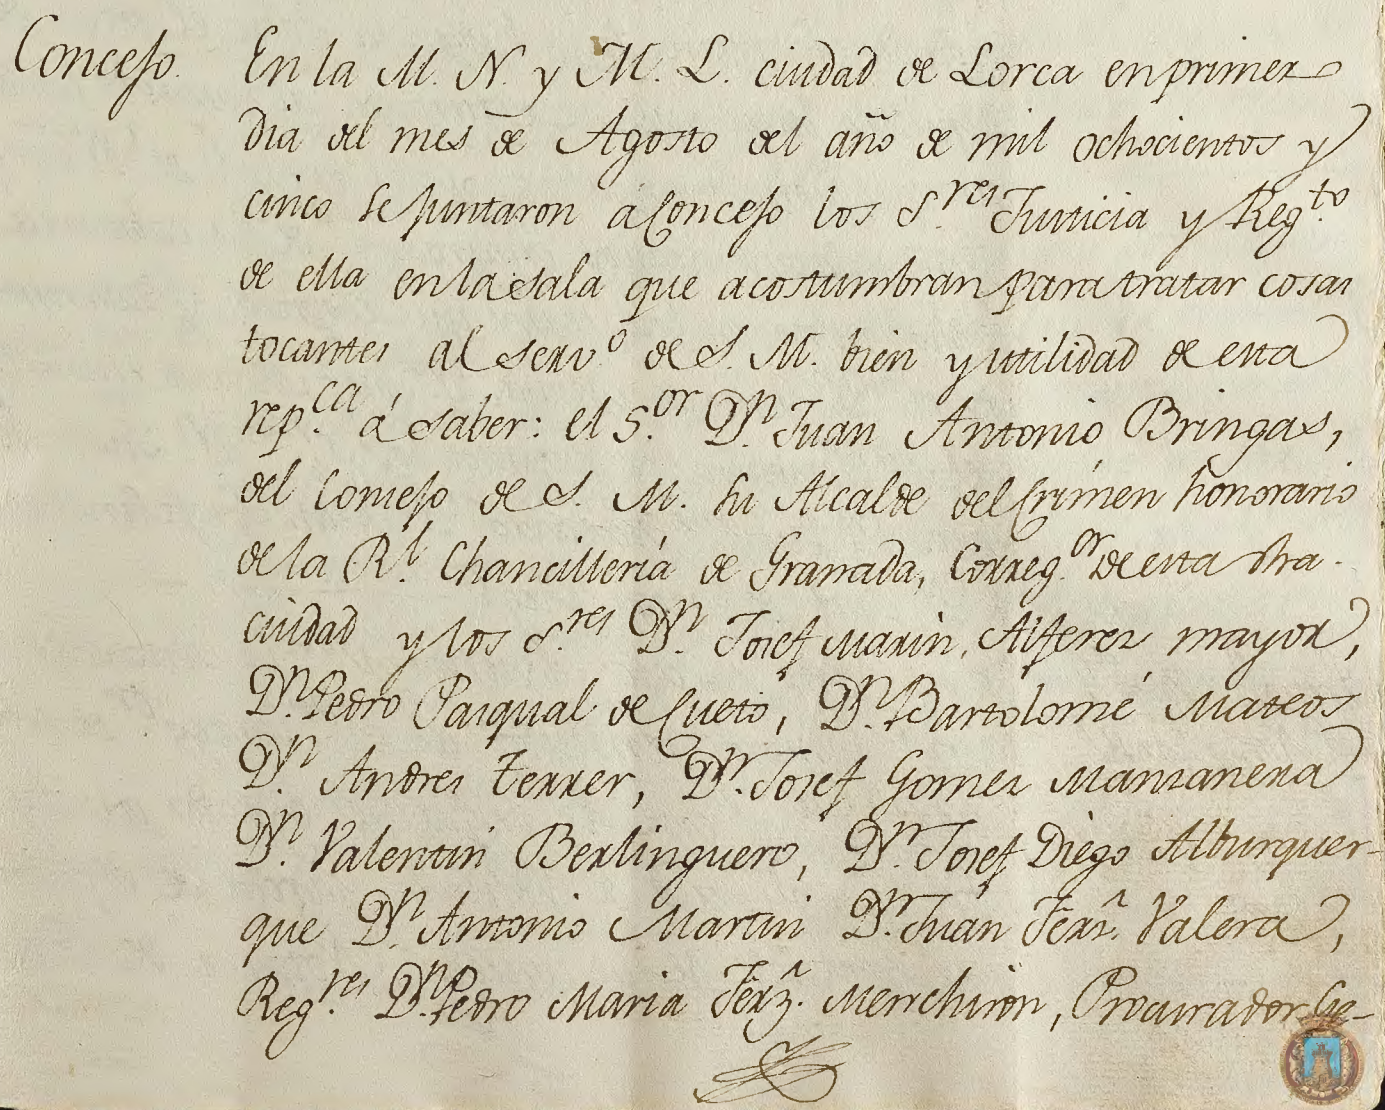 Concejo.
En la M. N. y M. L. ciudad de Lorca en primer
dia del mes de Agosto del año de mil ochocientos y
cinco se juntaron á Concejo los S.res Justicia y Reg.to
de ella en la sala que acostumbran para tratar cosas
tocantes al serv.o de S. M. bien y utilidad de esta
rep.ca á saber: el S.or D.n Juan Antonio Bringas,
del Consejo de S. M. su Alcalde del Crímen honorario
de la R.l Chancillería de Granada, Correg.or de esta dha.
ciudad y los S.res D.n Josef Marin, Alferez mayor,
D.n Pedro Pasqual de Cueto, D.n Bartolomé Mateos
D.n Andres Ferrer, D.n Josef Gomez Manzanera
D.n Valentin Berlinguero, D.n Josef Diego Alburquer-
que D.n Antonio Martin D.n Juan Fern. Valera,
Reg.res D.n Pedro Maria Ferz. Menchiron, Procurador Ge-